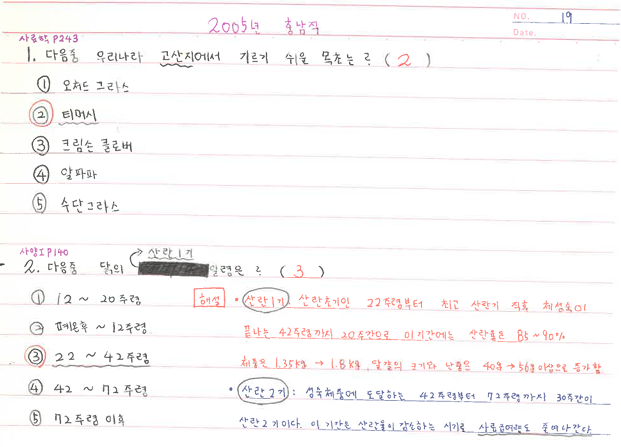 2005년 충남직
NO. 19
Date.
사료학 P243
1. 다음중 우리나라 고산지에서 기르기 쉬운 목초는? ( 2 )
① 오처드 그라스
② 티머시
③ 크림손 클로버
④ 알파파
⑤ 수단그라스
사양Ⅰ P140
산란1기
2. 다음중 닭의 일령은? ( 3 )
① 12 ~ 20주령
② 폐온후 ~ 12주령
③ 22 ~ 42주령
④ 42 ~ 72주령
⑤ 72주령 이후
해설 • 산란1기: 산란초기인 22주령부터 최고 산란기 직후 체성숙이
끝나는 42주령까지 20주간으로 이기간에는 산란율은 85~90%
체중은 1.35kg → 1.8kg 달걀의 크기와 난중은 40g → 56g이상으로 증가함
• 산란2기 : 성숙체중에 도달하는 42주령부터 72주령까지 30주간이
산란2기이다. 이 기간은 산란율이 감소하는 시기로 사료급여량도 줄여나간다.